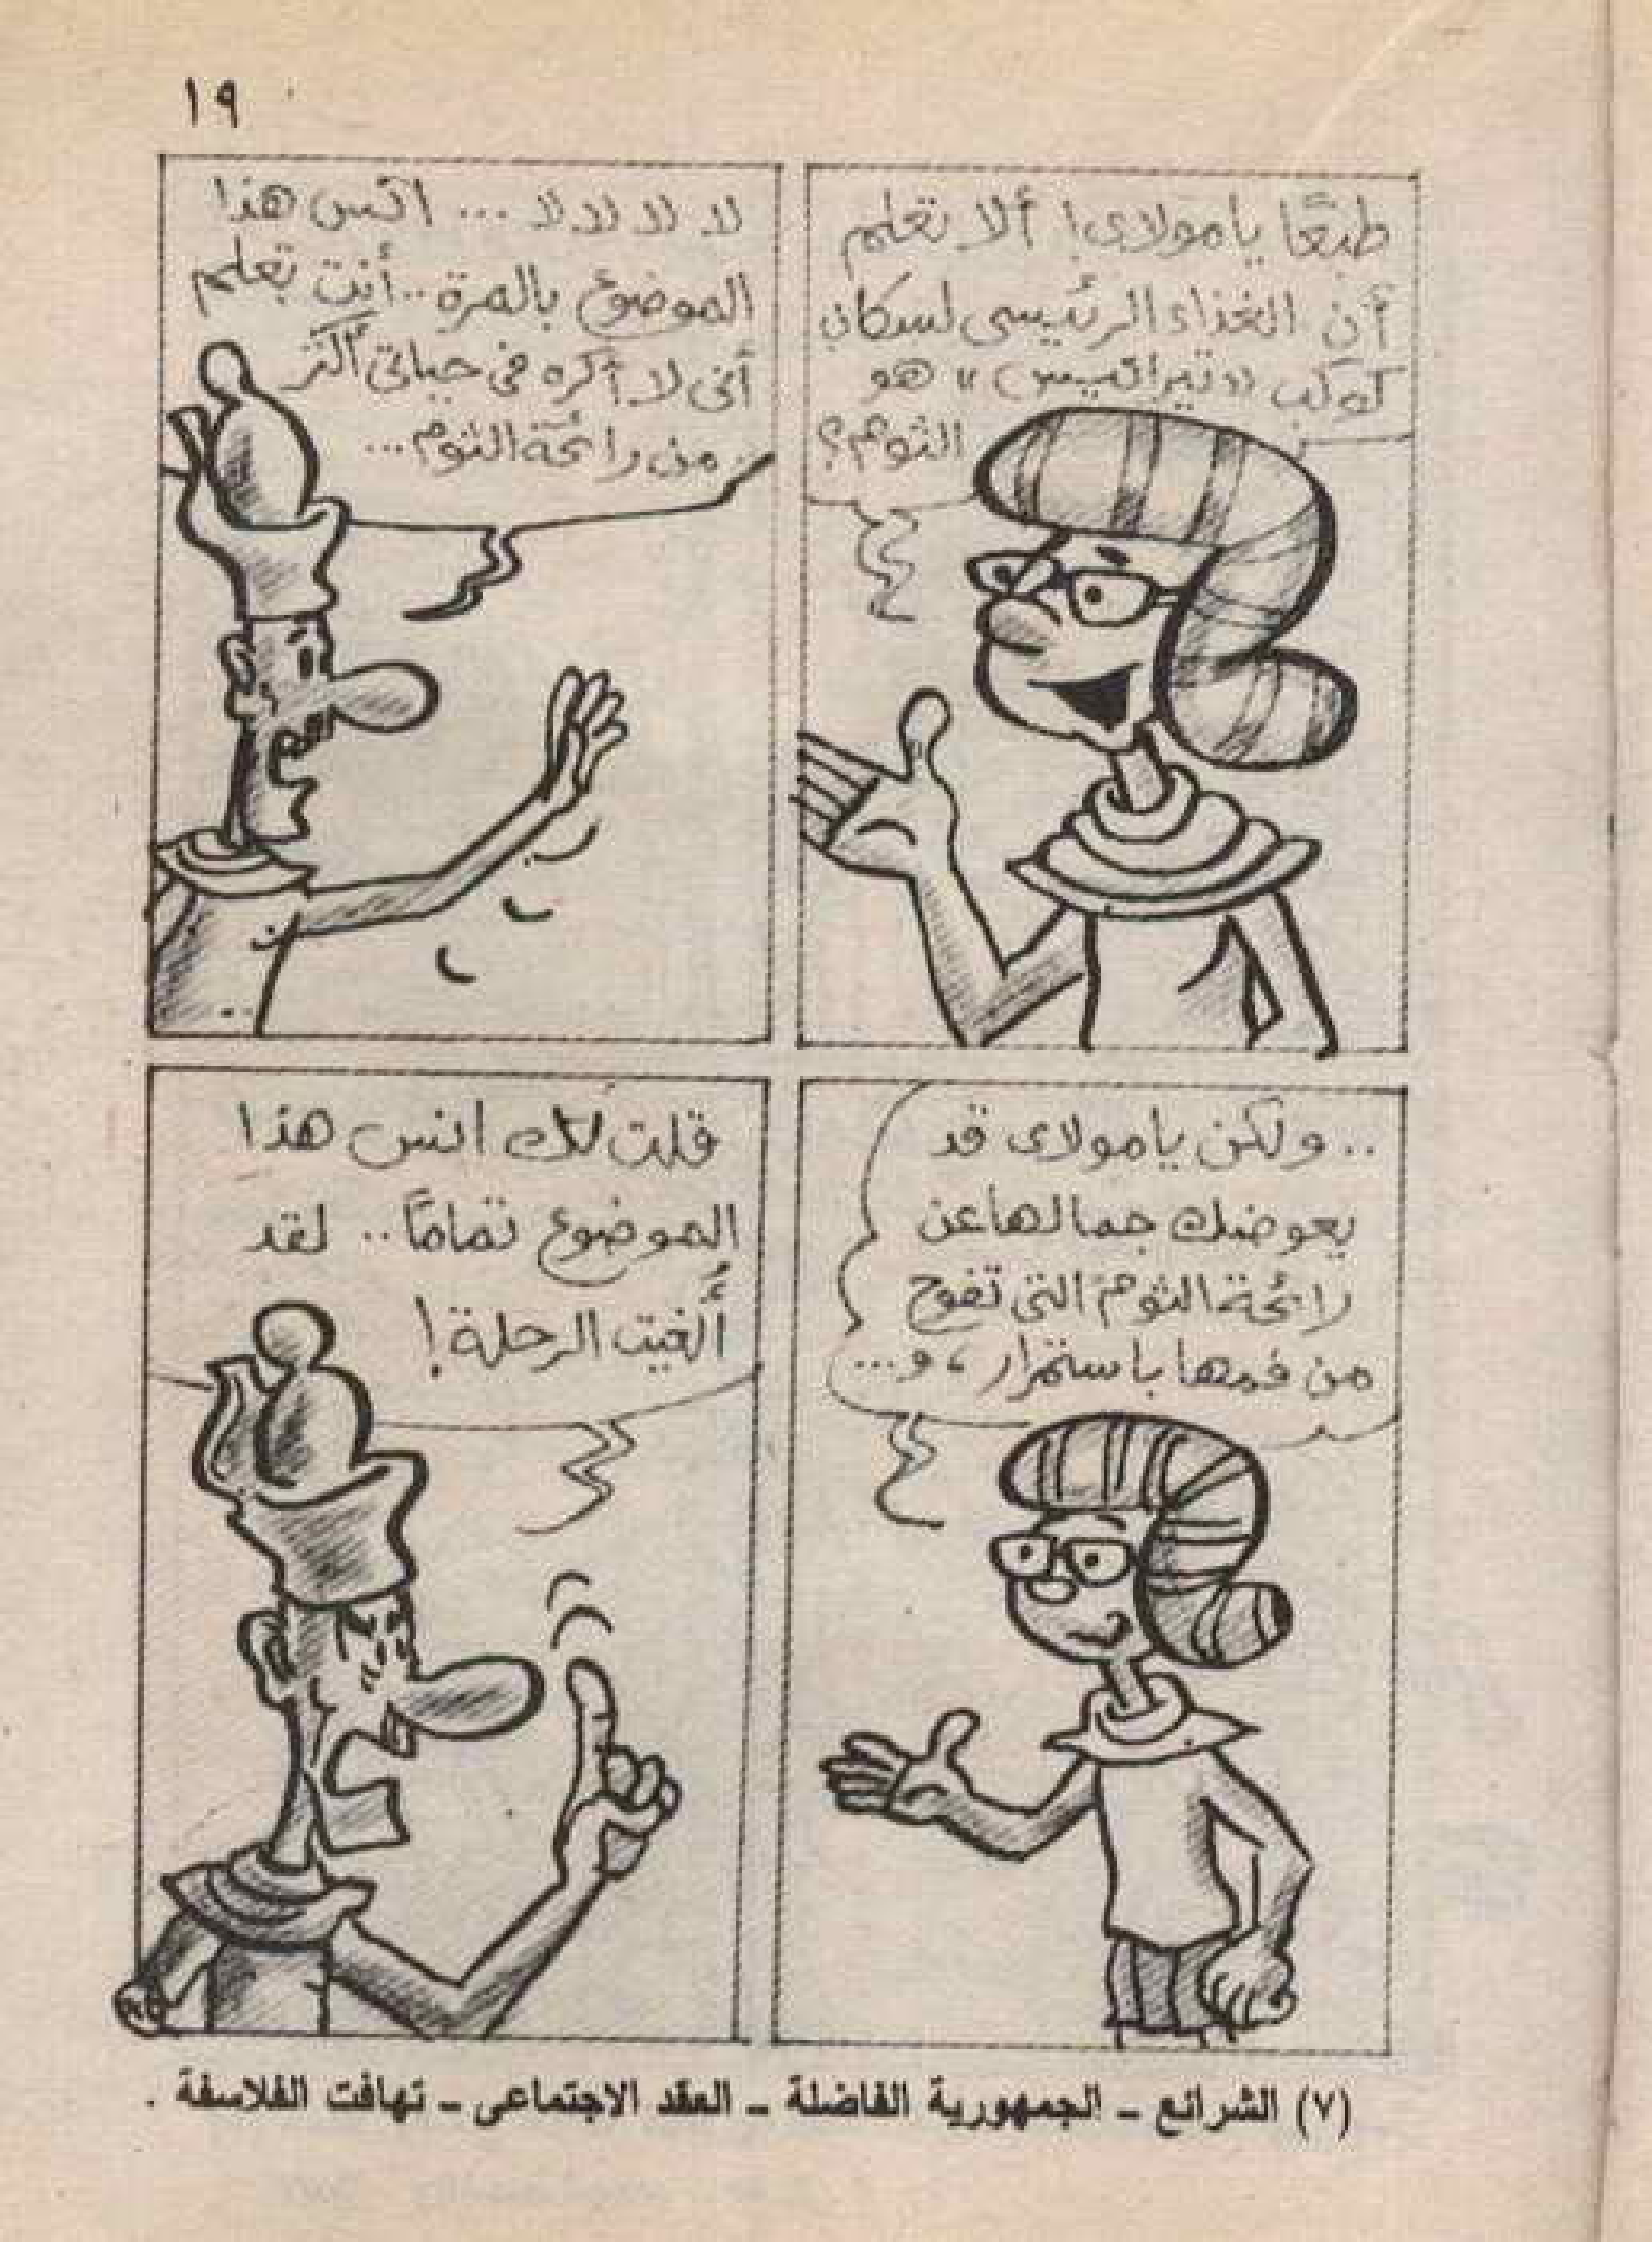 ١٩
طبعًا يا مولاى! ألا تعلم
أن الغذاء الرئيسى لسكان
كوكب «تيرانيس» هو
الثوم؟
لا لا لا لا لا ... انس هذا
الموضوع بالمرة.. أنت تعلم
أنى لا أكره فى حياتى أكثر
من رائحة الثوم...
.. ولكن يا مولاى قد
يعوضك جمالها عن
رائحة الثوم التى تفوح
من فمها باستمرار، و...
قلت لك انس هذا
الموضوع تمامًا.. لقد
أُلغيت الرحلة!
(٧) الشرائع - الجمهورية الفاضلة - العقد الاجتماعى - تهافت الفلاسفة .